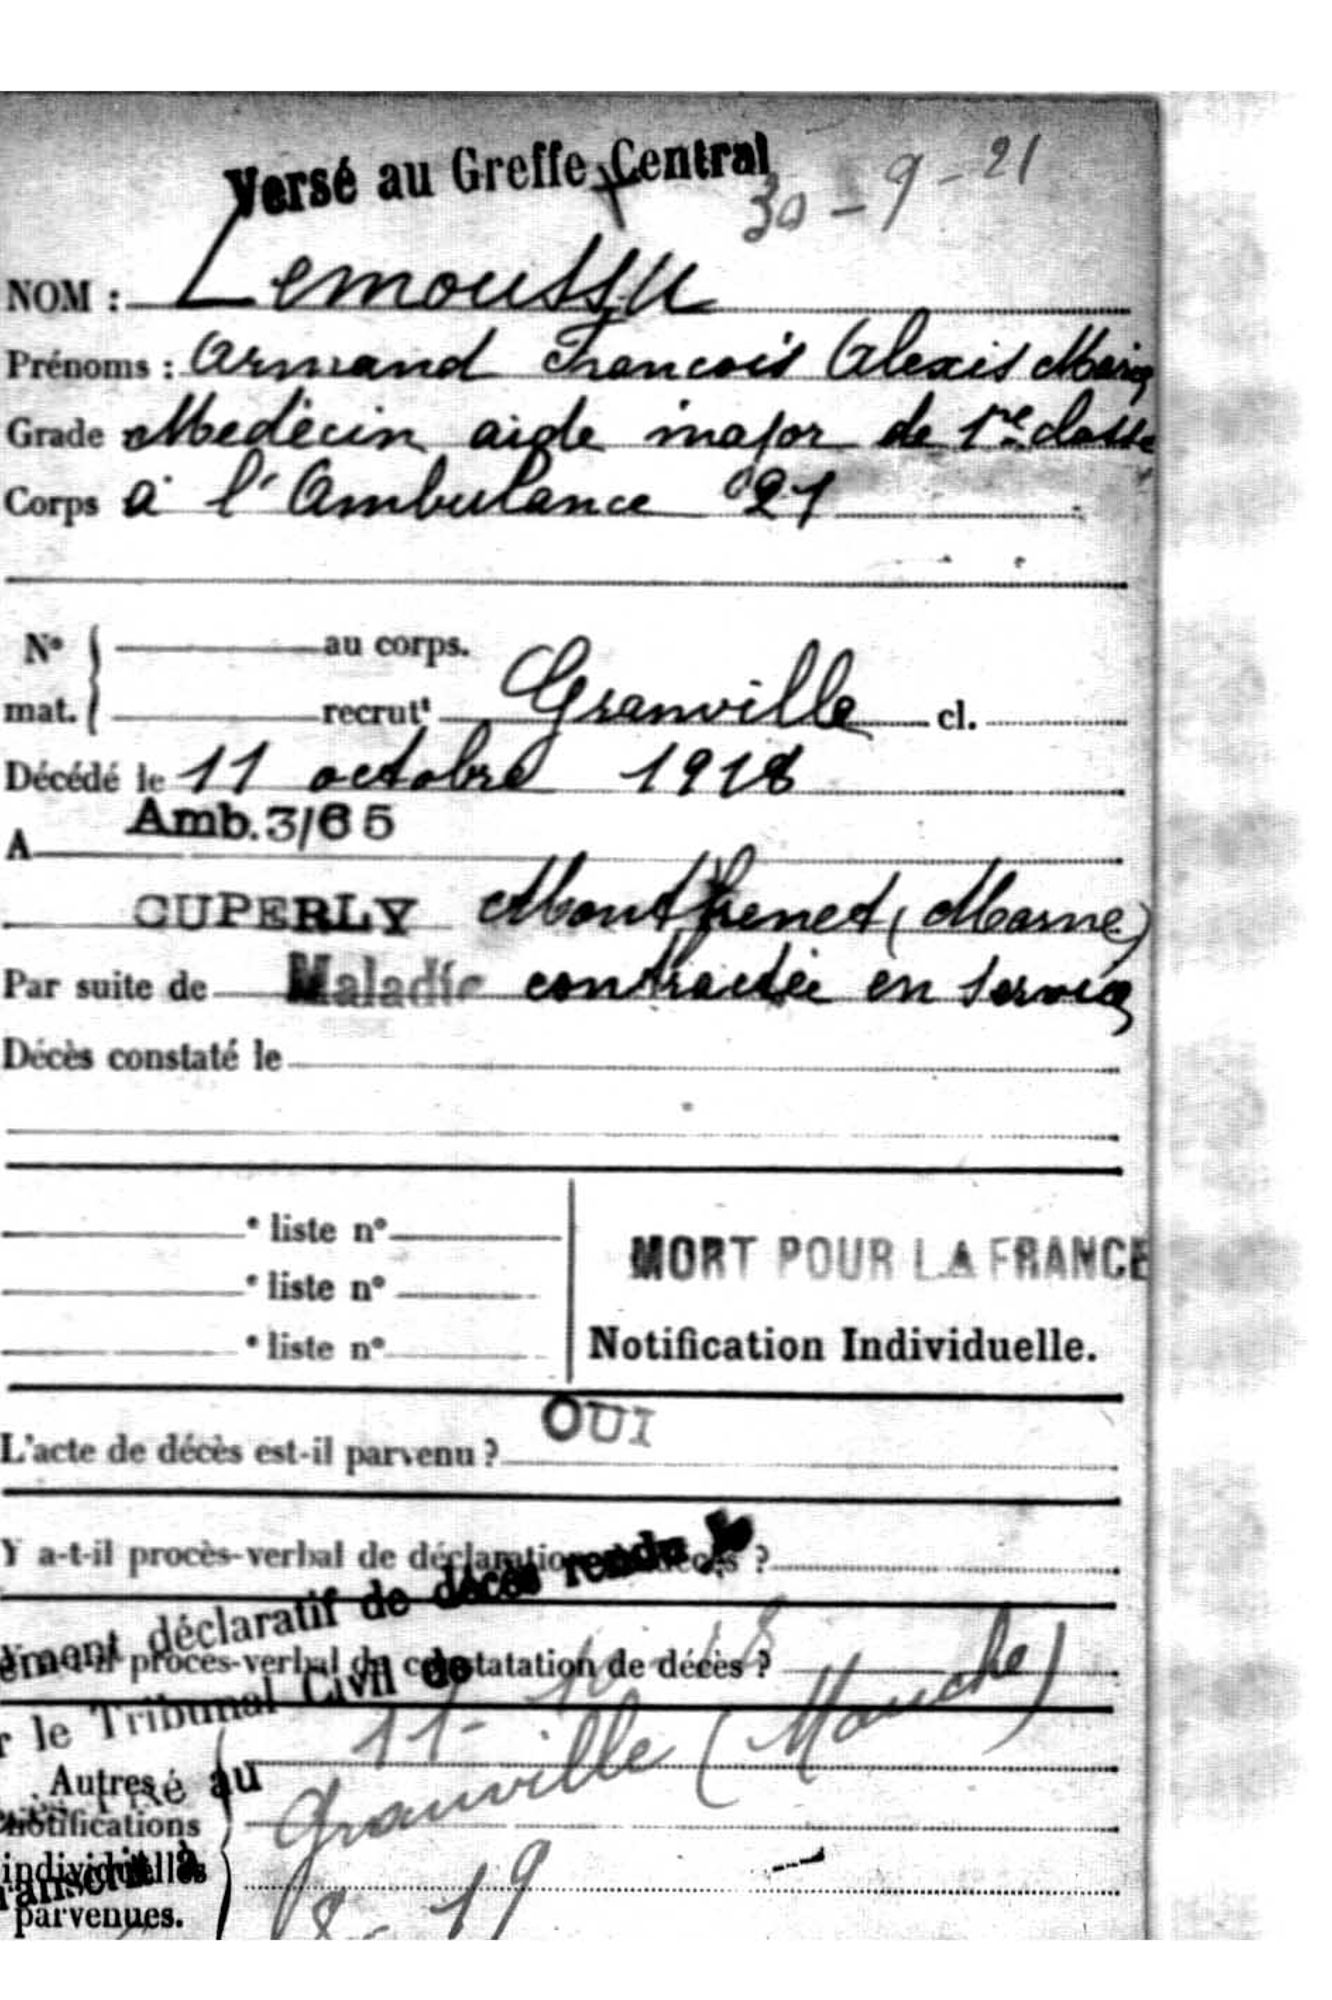 Versé au Greffe Central
30-9-21
NOM : Lemoussu
Prénoms : Armand François Alexis Marie
Grade Medécin aide major de 1re classe
Corps à l'Ambulance 21
No au corps.
mat. recrutt Granville cl.
Décédé le 11 octobre 1918
Amb. 3/65
A
CUPERLY Montfrenet (Marne)
Par suite de Maladie contractée en service
Décès constaté le
e liste no
e liste no
e liste no
MORT POUR LA FRANCE
Notification Individuelle.
OUI
L'acte de décès est-il parvenu ?
Y a-t-il procès-verbal de déclaration décès ?
déclaratif de décès rendu le
procès-verbal de constatation de décès ?
r le Tribunal Civil de
11-
Granville (Manche)
Autres
notifications
individuelles
parvenues.
au
8-19